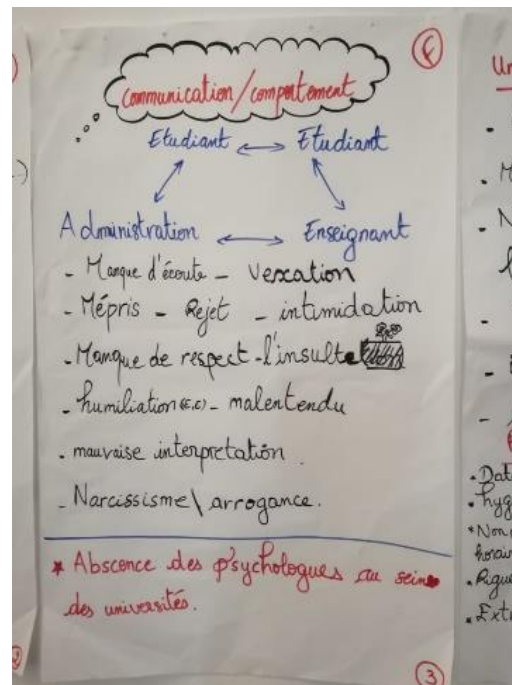 Communication/comportement
Etudiant ⟷ Etudiant
Administration ⟷ Enseignant
- Manque d'écoute - Vexation
- Mépris - Rejet - intimidation
- Manque de respect - l'insulte
- humiliation (E,E) - malentendu
- mauvaise interpretation.
- Narcissisme \ arrogance.
* Abscence des psychologues au sein
des universités.
3
Un